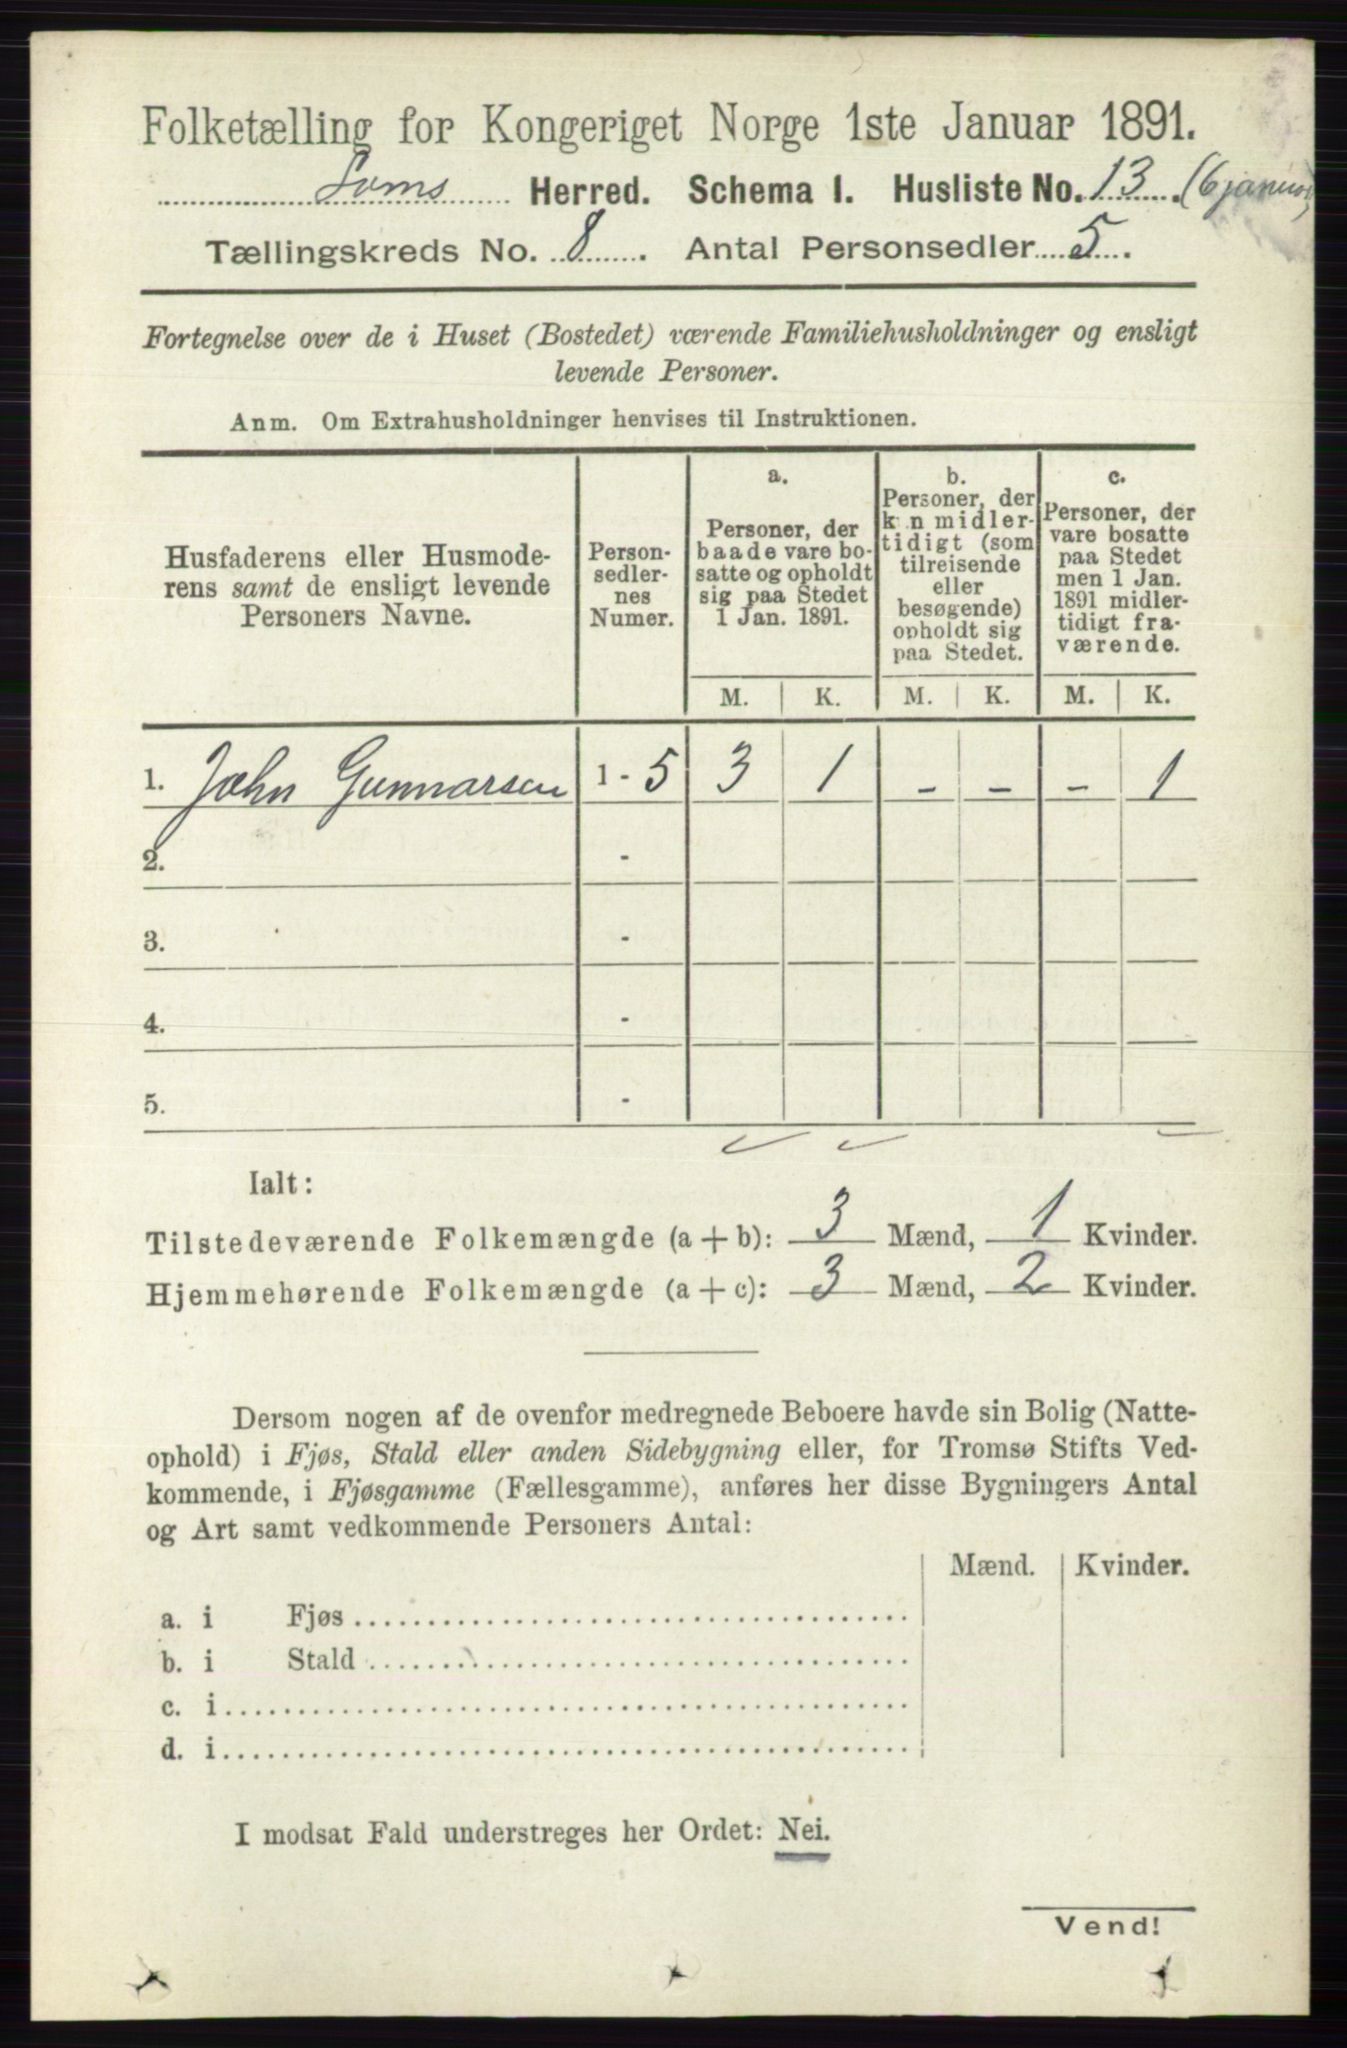 Folketælling for Kongeriget Norge 1ste Januar 1891.
Loms Herred. Schema I. Husliste No. 13. (6 januar)
Tællingskreds No. 8. Antal Personsedler 5.
Fortegnelse over de i Huset (Bostedet) værende Familiehusholdninger og ensligt
levende Personer.
Anm. Om Extrahusholdninger henvises til Instruktionen.
Husfaderens eller Husmode-
rens samt de ensligt levende
Personers Navne.
Person-
sedler-
nes
Numer.
a.
Personer, der
baade vare bo-
satte og opholdt
sig paa Stedet
1 Jan. 1891.
b.
Personer, der
k n midler-
tidigt (som
tilreisende
eller
besøgende)
opholdt sig
paa Stedet.
c.
Personer, der
vare bosatte
paa Stedet
men 1 Jan.
1891 midler-
tidigt fra-
værende.
M. K. M. K. M. K.
1. John Gunnarsen 1 - 5 3 1 - - - 1
2. -
3. -
4. -
5. -
Ialt:
Tilstedeværende Folkemængde (a + b): 3 Mænd, 1 Kvinder.
Hjemmehørende Folkemængde (a + c): 3 Mænd, 2 Kvinder.
Dersom nogen af de ovenfor medregnede Beboere havde sin Bolig (Natte-
ophold) i Fjøs, Stald eller anden Sidebygning eller, for Tromsø Stifts Ved-
kommende, i Fjøsgamme (Fællesgamme), anføres her disse Bygningers Antal
og Art samt vedkommende Personers Antal:
Mænd. Kvinder.
a. i Fjøs
b. i Stald
c. i
d. i
I modsat Fald understreges her Ordet: Nei.
Vend!